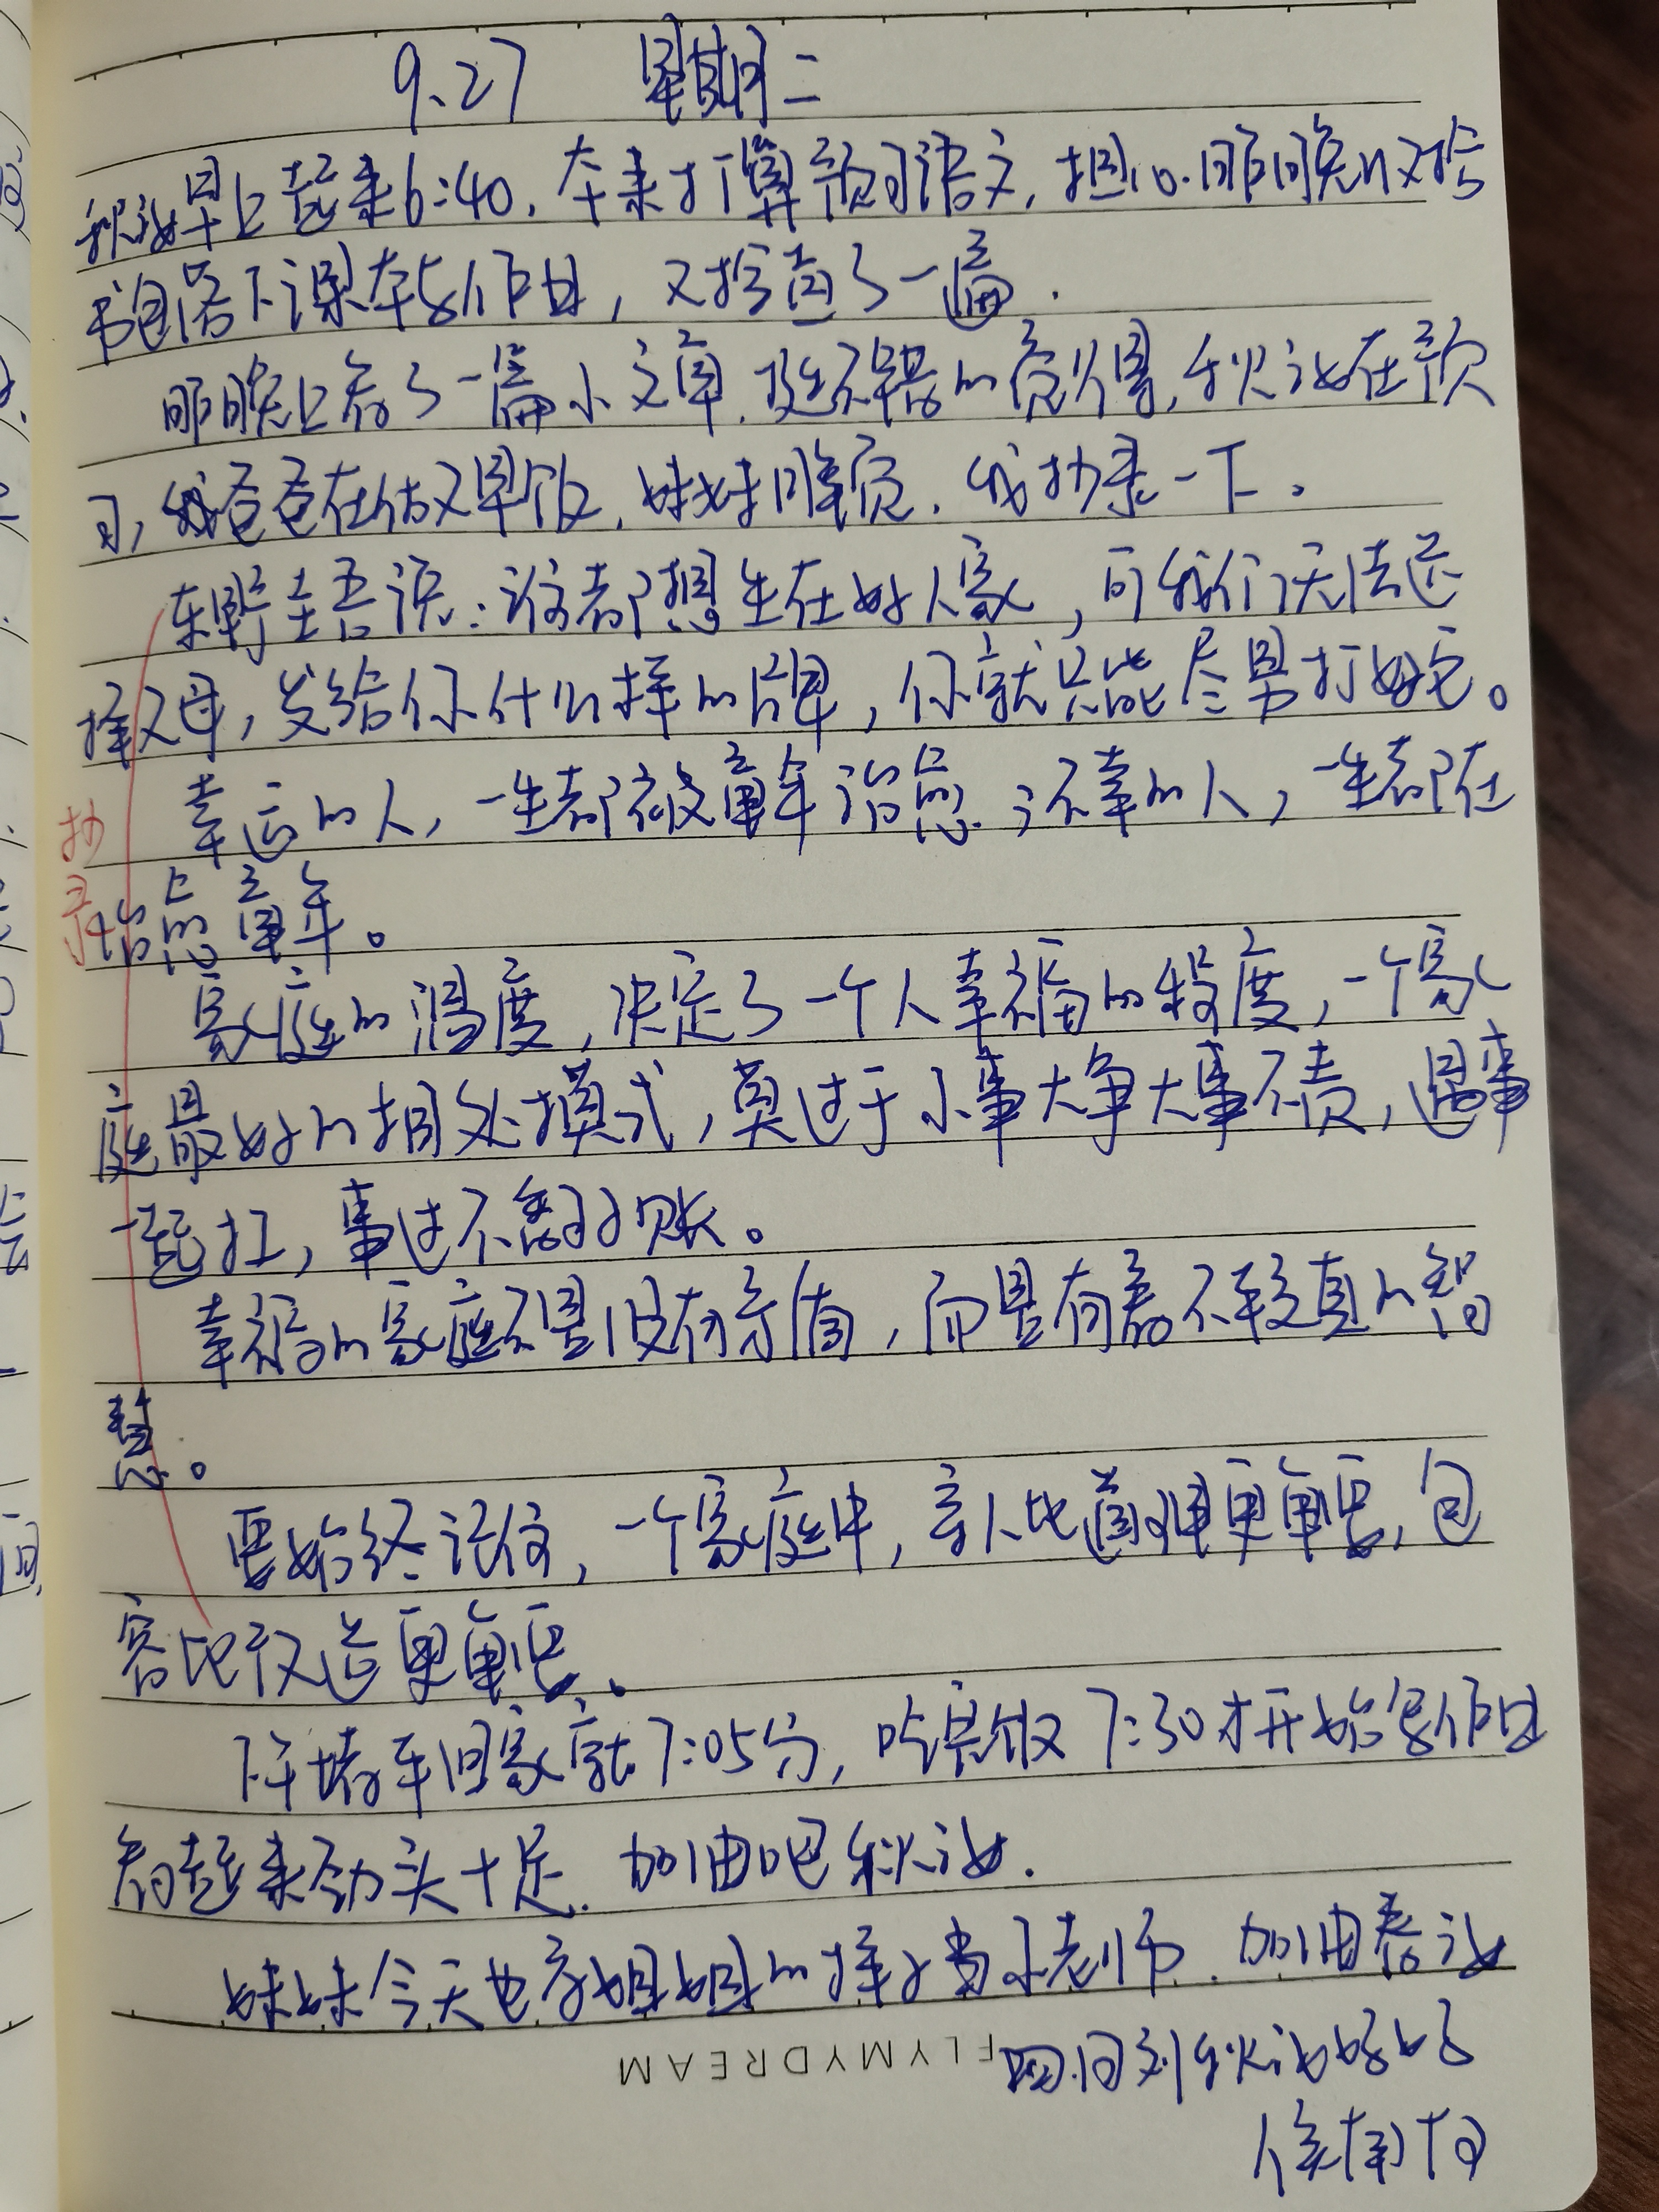 9.27 星期二
秋汝早上起来6:40,本来打算预习语文,担心昨晚收拾
书包落下课本与作业,又检查了一遍.
昨晚上看了一篇小文章,挺不错的觉得,秋汝在预
习,我爸爸在做早饭,妹妹睡觉,我抄录一下。
东野圭吾说:谁都想生在好人家,可我们无法选
择父母,发给你什么样的牌,你就只能尽男打好它。
幸运的人,一生都被童年治愈;不幸的人,一生都在
治愈童年。
抄录
家庭的温度,决定了一个人幸福的程度,一个家
庭最好的相处模式,莫过于小事不争大事不责,遇事
一起扛,事过不翻旧账。
幸福的家庭不是没有矛盾,而是有着不较真的智
慧。
要始终记住,一个家庭中,亲人比道理更重要,包
容比改造更重要。
下午堵车回家就7:05分,吃完饭7:30才开始写作业
看起来劲头十足.加油吧秋汝.
妹妹今天也学姐姐的样子当小老师.加油春汝
FLYMYDREAM